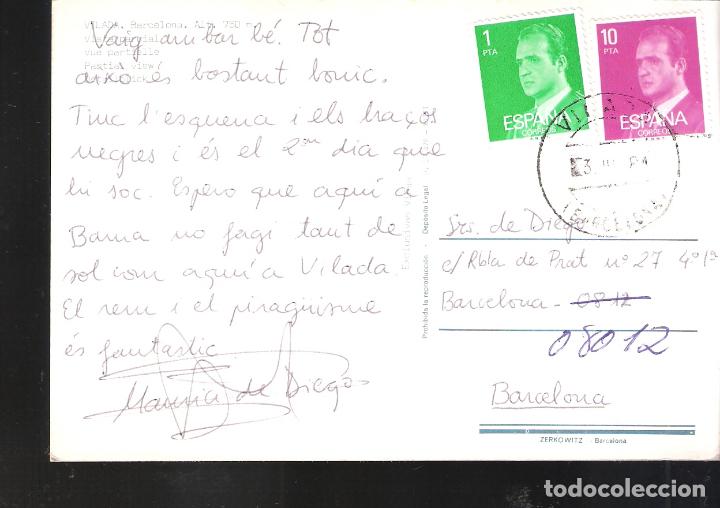 VILADA. Barcelona. Alt. 750 m.
Vue partielle
Partial view
Vaig arribar bé. Tot
aixo és bastant bonic.
Tinc l'esquena i els braços
negres i és el 2on dia que
hi soc. Espero que aquí a
Barna no fagi tant de
sol com aquí a Vilada.
El rem i el piragüisme
és fantastic
de Diego
1
PTA
ESPAÑA
CORREOS
10
PTA
ESPAÑA
CORREOS
Srs. de Diego
c/ Rbla de Prat nº 27 4º 1ª
Barcelona - 0812
08012
Barcelona
Prohibida la reproducción. - Depósito Legal
ZERKOWITZ - Barcelona
todocoleccion.net